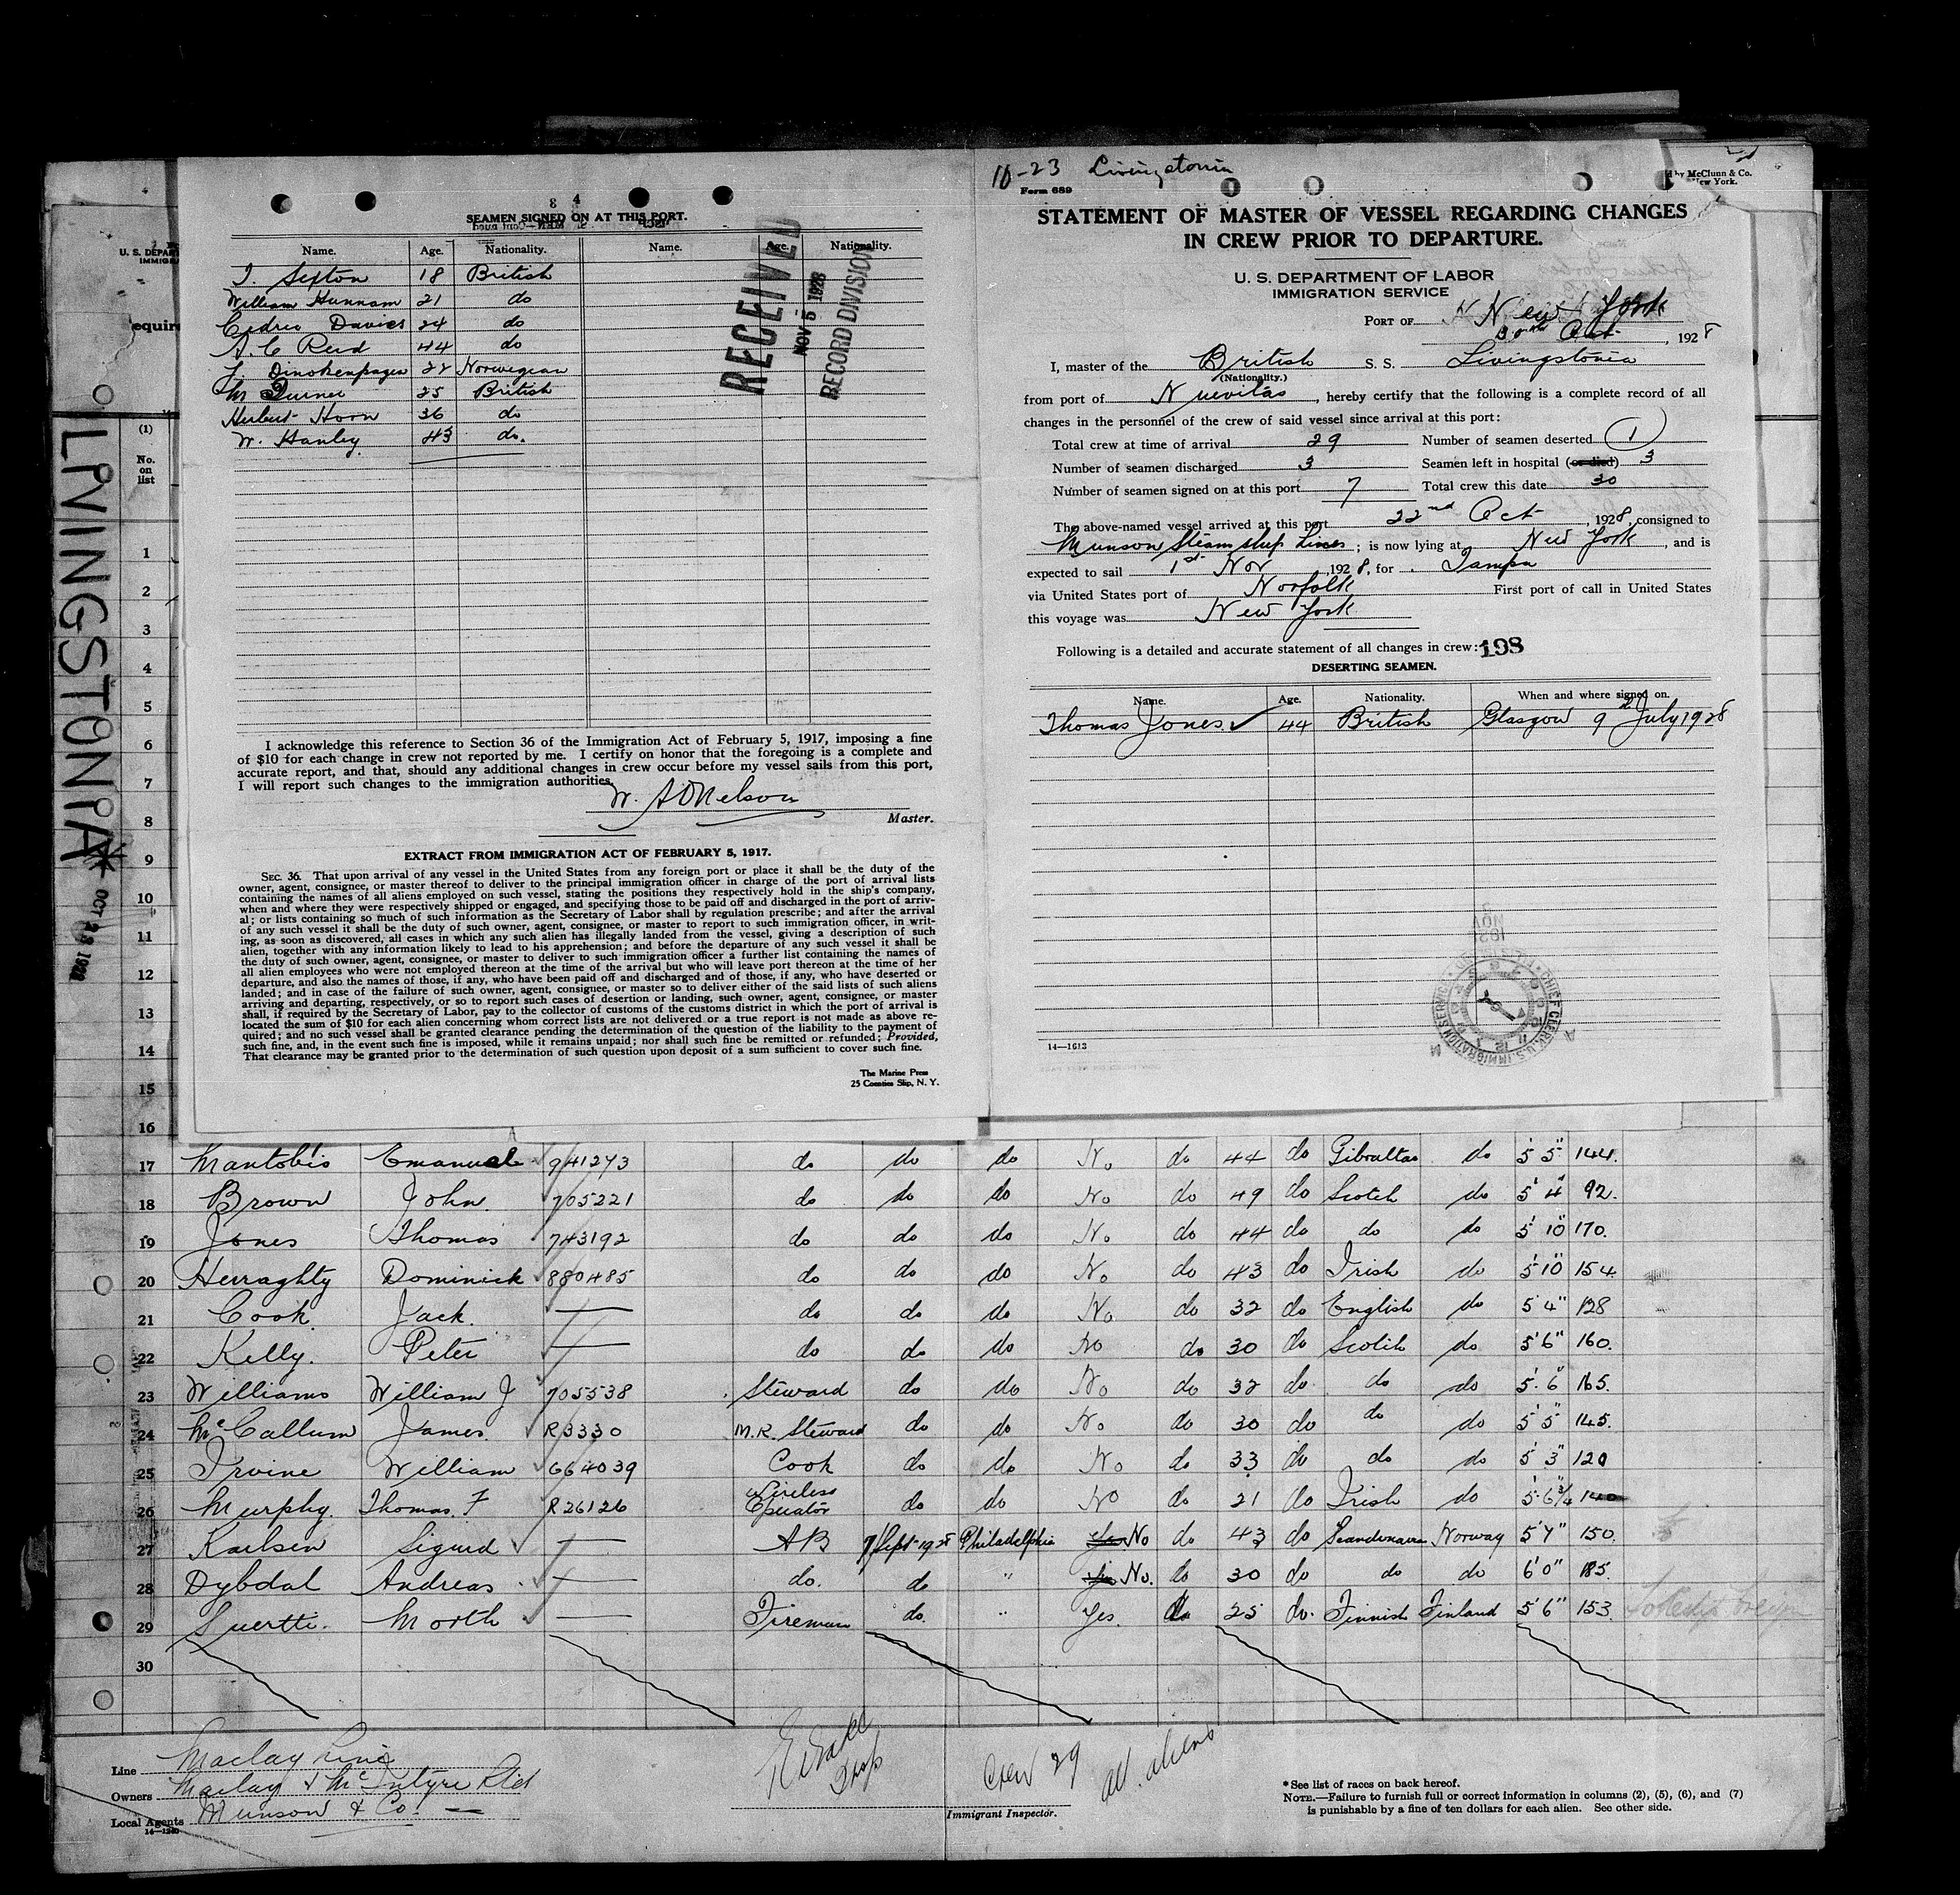 10-23 Livingstonia
Form 689
by McClunn & Co.
New York.
SEAMEN SIGNED ON AT THIS PORT.
Name. Age. Nationality. Name. Age. Nationality.
J. Sexton 18 British
William Hannam 21 do
Cedric Davies 24 do
A. C Reid 44 do
22 Norwegian
25 British
Herbert Horn 36 do
W. Hanley 43 do.
RECEIVED
NOV 5 1928
RECORD DIVISION
I acknowledge this reference to Section 36 of the Immigration Act of February 5, 1917, imposing a fine
of $10 for each change in crew not reported by me. I certify on honor that the foregoing is a complete and
accurate report, and that, should any additional changes in crew occur before my vessel sails from this port,
I will report such changes to the immigration authorities.
Master.
EXTRACT FROM IMMIGRATION ACT OF FEBRUARY 5, 1917.
SEC. 36. That upon arrival of any vessel in the United States from any foreign port or place it shall be the duty of the
owner, agent, consignee, or master thereof to deliver to the principal immigration officer in charge of the port of arrival lists
containing the names of all aliens employed on such vessel, stating the positions they respectively hold in the ship's company,
when and where they were respectively shipped or engaged, and specifying those to be paid off and discharged in the port of arriv-
al; or lists containing so much of such information as the Secretary of Labor shall by regulation prescribe; and after the arrival
of any such vessel it shall be the duty of such owner, agent, consignee, or master to report to such immigration officer, in writ-
ing, as soon as discovered, all cases in which any such alien has illegally landed from the vessel, giving a description of such
alien, together with any information likely to lead to his apprehension; and before the departure of any such vessel it shall be
the duty of such owner, agent, consignee, or master to deliver to such immigration officer a further list containing the names of
all alien employees who were not employed thereon at the time of the arrival but who will leave port thereon at the time of her
departure, and also the names of those, if any, who have been paid off and discharged and of those, if any, who have deserted or
landed; and in case of the failure of such owner, agent, consignee, or master so to deliver either of the said lists of such aliens
arriving and departing, respectively, or so to report such cases of desertion or landing, such owner, agent, consignee, or master
shall, if required by the Secretary of Labor, pay to the collector of customs of the customs district in which the port of arrival is
located the sum of $10 for each alien concerning whom correct lists are not delivered or a true report is not made as above re-
quired; and no such vessel shall be granted clearance pending the determination of the question of the liability to the payment of
such fine, and, in the event such fine is imposed, while it remains unpaid; nor shall such fine be remitted or refunded; Provided,
That clearance may be granted prior to the determination of such question upon deposit of a sum sufficient to cover such fine.
The Marine Press
25 Coenties Slip, N. Y.
STATEMENT OF MASTER OF VESSEL REGARDING CHANGES
IN CREW PRIOR TO DEPARTURE.
U. S. DEPARTMENT OF LABOR
IMMIGRATION SERVICE
PORT OF New York
30th Oct, 1928
I, master of the British S. S. Livingstonia
(Nationality.)
from port of Nuevitas, hereby certify that the following is a complete record of all
changes in the personnel of the crew of said vessel since arrival at this port:
Total crew at time of arrival 29 Number of seamen deserted 1
Number of seamen discharged 3 Seamen left in hospital (or died) 3
Number of seamen signed on at this port 7 Total crew this date 30
The above-named vessel arrived at this port 22nd Oct, 1928, consigned to
Munson Steam ship Lines; is now lying at New York, and is
expected to sail 1st Nov, 1928, for Tampa
via United States port of Norfolk First port of call in United States
this voyage was New York
Following is a detailed and accurate statement of all changes in crew: 198
DESERTING SEAMEN.
Name. Age. Nationality. When and where signed on.
Thomas Jones. 44 British Glasgow 9th July 1928
14—1613
U. S. DEPAR
IMMIGR
equire
LIVINGSTONIA
OCT 23 1928
(1)
No.
on
list
1
2
3
4
5
6
7
8
9
10
11
12
13
14
15
16
17 Emanuel 941273 do do do No do 44 do Gibraltar do 5' 5" 144.
18 Brown John. 705221 do do do No do 49 do Scotch do 5' 4" 92.
19 Jones Thomas 743192 do do do No do 44 do do do 5' 10" 170.
20 Herraghty Dominick 880485 do do do No do 43 do Irish do 5' 10" 154
21 Cook Jack. — do do do No do 32 do English do 5' 4" 128
22 Kelly. Peter — do do do No do 30 do Scotch do 5' 6" 160.
23 Williams William J 705538 Steward do do No do 32 do do do 5' 6" 165.
24 McCallum James. R3330 M.R. Steward do do No do 30 do do do 5' 5" 145.
25 Irvine William 664039 Cook do do No do 33 do do do 5' 3" 120
26 Murphy. Thomas. F R26126 Wireless Operator do do No do 21 do Irish do 5' 6 3/4" 140
27 Karlsen Sigurd — AB 7/Sept-1928 Philadelphia Yes No do 43 do Scandinavian Norway 5' 7" 150.
28 Dybdal Andreas. — do. do " Yes No. do 30 do do do 6' 0" 185.
29 — Fireman do. " Yes. do 25 do. Finnish Finland 5' 6" 153.
30
Line Maclay Line
Owners Maclay & McIntyre Ltd
Local Agents Munson & Co.
14—1240
Crew 29 all aliens
Immigrant Inspector.
*See list of races on back hereof.
NOTE.—Failure to furnish full or correct information in columns (2), (5), (6), and (7)
is punishable by a fine of ten dollars for each alien. See other side.